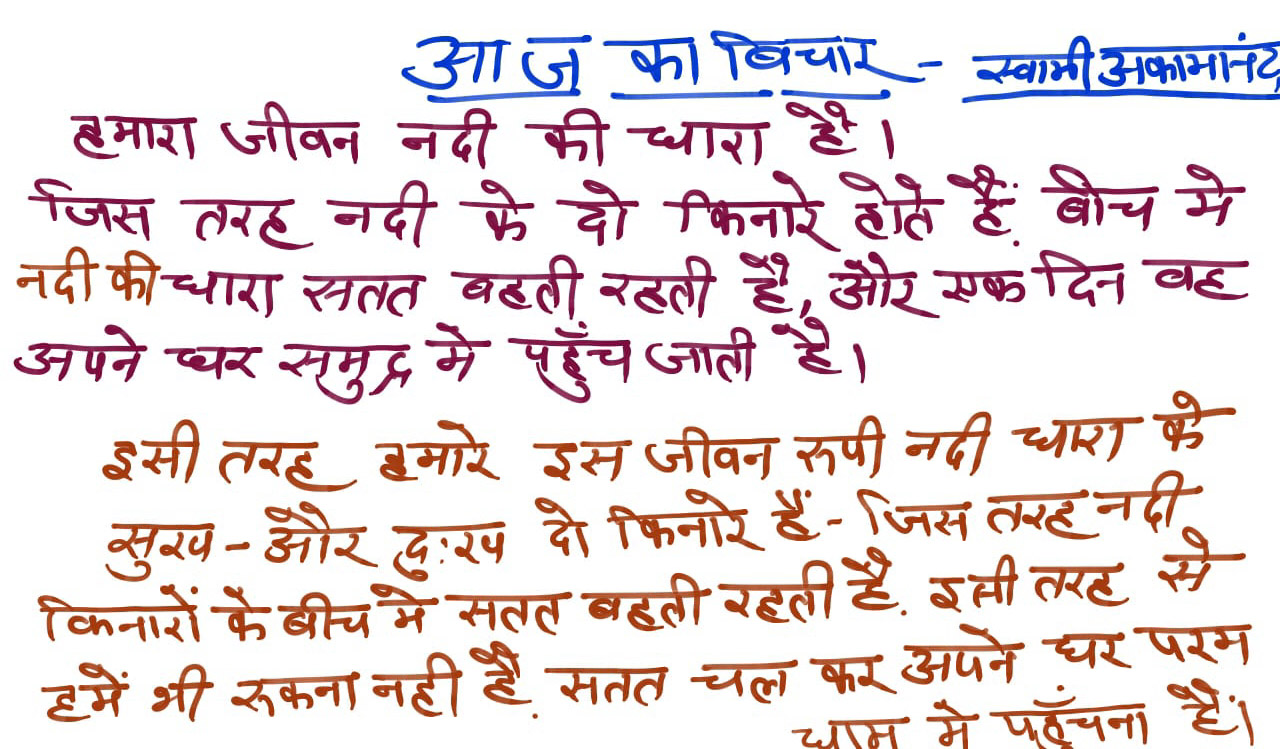 आज का विचार - स्वामी अकामानंद
हमारा जीवन नदी की धारा है।
जिस तरह नदी के दो किनारे होते हैं. बीच मे
नदी की धारा सतत बहती रहती है, और एक दिन वह
अपने घर समुद्र मे पहुँच जाती है।
इसी तरह हमारे इस जीवन रुपी नदी धारा के
सुख - और दुःख दो किनारे हैं - जिस तरह नदी
किनारों के बीच मे सतत बहती रहती है. इसी तरह से
हमें भी रुकना नही है. सतत चल कर अपने घर परम
धाम मे पहुँचना है।